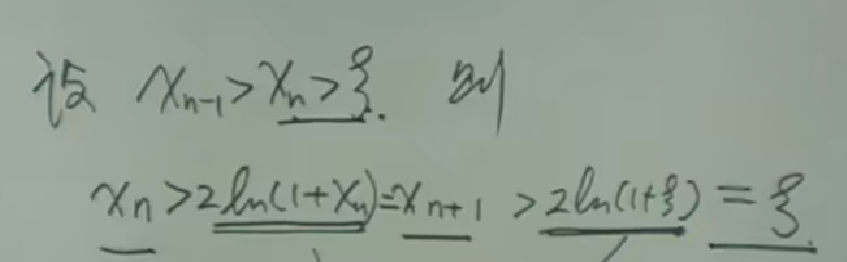 设 xₙ₋₁>xₙ>ξ. 则
xₙ>2ln(1+xₙ)=xₙ₊₁>2ln(1+ξ)=ξ